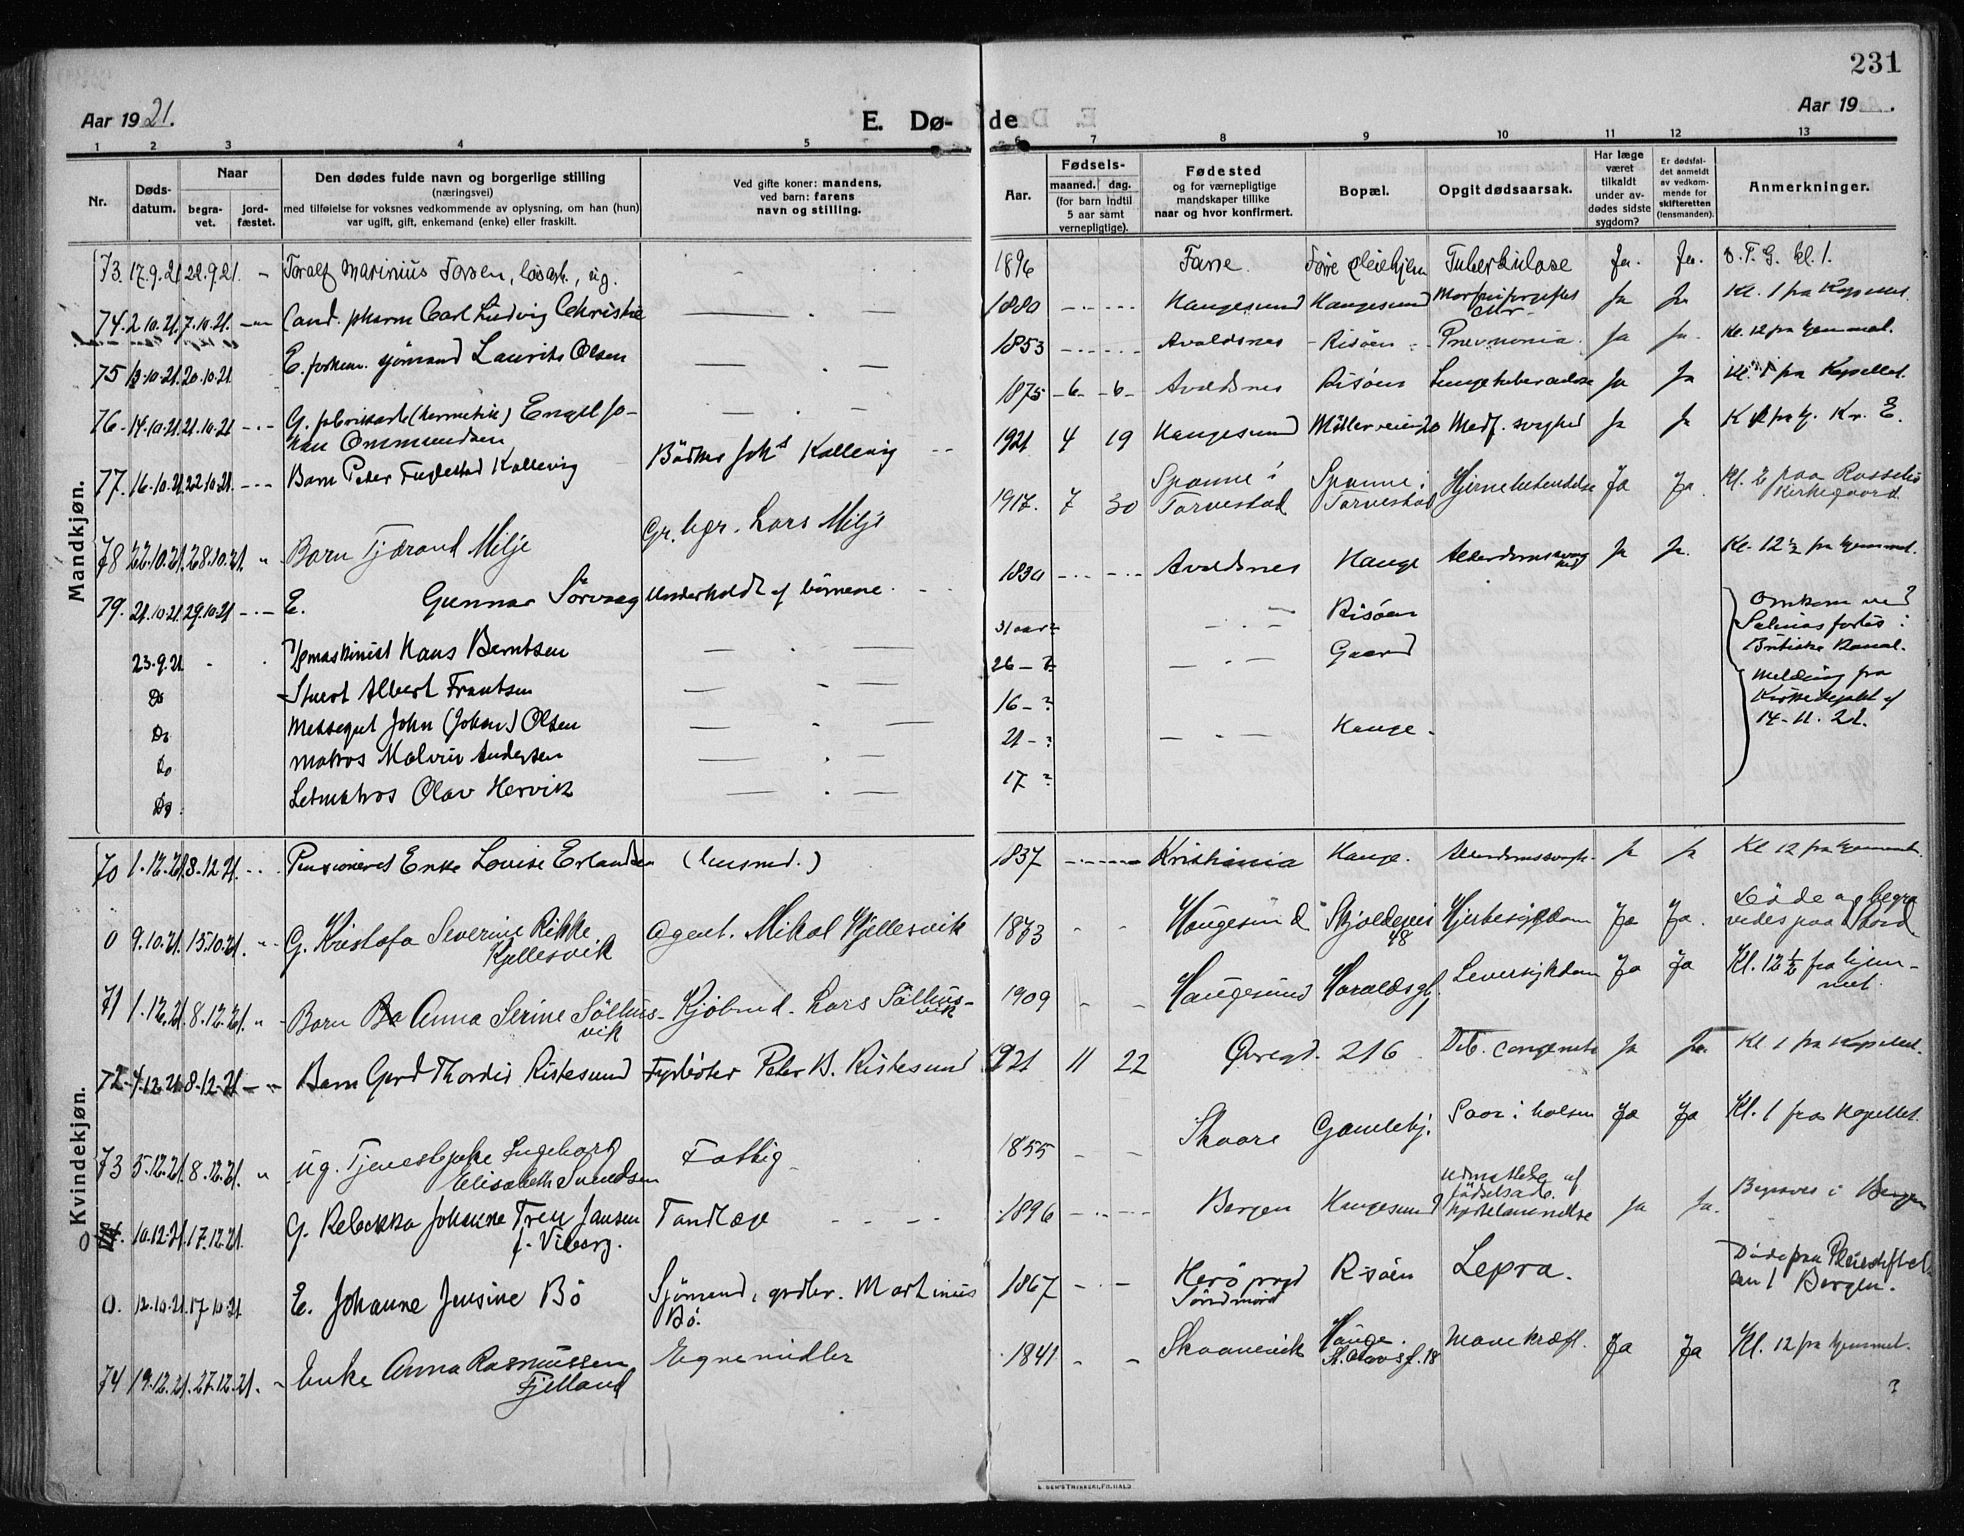 231
Aar 1921.
E. Dø-
de
Aar 19 .
1 2 3 4 5 6 7 8 9 10 11 12 13
Nr.
Døds-
datum.
Naar
begra-
vet.
jord-
fæstet.
Den dødes fulde navn og borgerlige stilling
(næringsvei)
med tilføielse for voksnes vedkommende av oplysning, om han (hun)
var ugift, gift, enkemand (enke) eller fraskilt.
Ved gifte koner: mandens,
ved barn: farens
navn og stilling.
Aar.
Fødsels-
maaned. dag.
(for barn indtil
5 aar samt
vernepligtige).
Fødested
og for værnepligtige
mandskaper tillike
naar og hvor konfirmert.
Bopæl.
Opgit dødsaarsak.
Har læge
været
tilkaldt
under av-
dødes sidste
sygdom?
Er dødsfal-
det anmeldt
av vedkom-
mende for
skifteretten
(lensmanden).
Anmerkninger.
Mandkjøn.
73. 17.9.21 22.9.21. - Toralf Marinius Torsen, løsarb., ug. 1896 Tuberkulose Ja. Ja. Kl. 1.
74. 2.10.21. 7.10.21. Cand. pharm Carl Ludvig Christie 1880 Haugesund Haugesund Ja Ja Kl. 1 fra Kapellet.
75 13.10.21. 20.10.21 E. forhenv. sjømand Laurits Olsen 1853 Avaldsnes Risøen Pnevmonia. Ja Ja. Kl. 12 fra hjemmet.
76 14.10.21. 21.10.21 G. fabrikarb (hermetik) Engel Jo-
han Ommundsen 1875 6 6 Avaldsnes Risøen Lungetuberculose Ja Ja Kl. 1 fra Kapellet.
77. 16.10.21. 22.10.21. Barn Peter Fuglestad Kallevig Bødker Johs Kallevig 1921 4 19 Haugesund Møllerveien 20 Medf. svaghed Ja Ja
78 22.10.21. 28.10.21. Barn Tjærand Milje Gr. bgr. Lars Milje 1917. 7 30 Spanne i
Torvestad Spanne i
Torvestad Hjernebetendelse Ja Ja. Kl. 2 paa
Kirkegaard
79. 21.10.21. 29.10.21 E. Gunnar Sørvaag Underholdt af børnene. 1830 Avaldsnes Hauge Alderdomssvag
hed Ja Ja. Kl. 12 ½ fra hjemmet.
23.9.21 maskinist Hans Berntsen 31 aar Risøen
Do Stuert Albert Frantsen 26 - ? Gaard
Do Messegut John (Johan) Olsen 16 - ?
Do Matros Malvin Andersen 21 - ? Hauge.
Do Letmatros Olav Hervik 17 ?
Omkom ved
i
Britiske Kanal.
Melding fra
af
14-11.21.
Kvindekjøn.
70 1.12.21. 8.12.21. Pensioneret Enke Louise Erlandsen 1837 Kristiania Hauge. Alderdomssvagh. Ja Ja Kl 12 fra hjemmet.
0 9.10.21. 15.10.21. G. Kristofa Severine Rikke
Kjellesvik Agent. Mikal Kjellesvik 1873 Haugesund Skjoldevei
48 Hjertesygdom Ja Ja. Døde og begra
vedes paa Stord.
71 1.12.21. 8.12.21. Barn Anna Serine Sølhus-
vik Kjøbmd. Lars Sølhus-
vik 1909 Haugesund Haraldsgt. Leversykdom Ja Ja Kl. 12 ½ fra hjem-
met.
72 4.12.21 8.12.21 Barn Gerd Thordis Ristesund Fyrbøter Peter B. Ristesund 1921 11 22 Øvregt. 216 Deb. congenita Ja Ja. Kl 1 fra Kapellet.
73 5.12.21. 8.12.21. Ug. Tjenestepike Ingeborg
Elisabeth Svendsen Fattig 1855 Skaare Gamlehj. Saar i halsen Ja Ja Kl. 1 fra Kapellet.
0 10.12.21. 17.12.21. G. Rebekka Johanne Jansen
f. Viberg. Tandlæge 1896 Bergen Haugesund Udmattelse af
fødselsarb. Ja Ja. Begraves i Bergen
0. 12.10.21. 17.10.21 E. Johanne Jensine Bø Sjømand, Martinius
Bø. 1867 Herø prgd
Søndmør Risøen Lepra. Døde paa Pleiestiftel
sen i Bergen.
74 19.12.21. 27.12.21. Enke Anna Rasmussen
Fjelland Egne midler 1841 Skaanevik Hauge.
St. Olavsgt. 18 Mave kræft. Ja Ja Kl. 12 fra hjemmet.
?